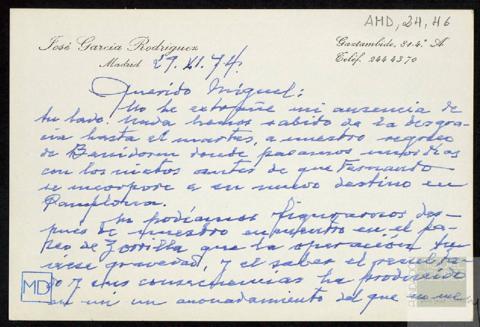 AMD, 24, 46
José García Rodríguez
Madrid 27. XI. 74.
Gaztambide, 31-4.º A
Teléf. 244 43 70
Querido Miguel:
No te extrañe mi ausencia de
tu lado. Nada hemos sabido de la desgra-
cia hasta el martes, a nuestro regreso
de Benidorm donde pasamos unos días
con los nietos antes de que Fernando
se incorpore a su nuevo destino en
Pamplona.
podíamos figurarnos des-
pués de nuestro encuentro en el pa-
seo de Zorrilla que la operación tu-
viese gravedad, y el saber el resulta-
do y sus consecuencias ha producido
en mí un anonadamiento del que no me
MD